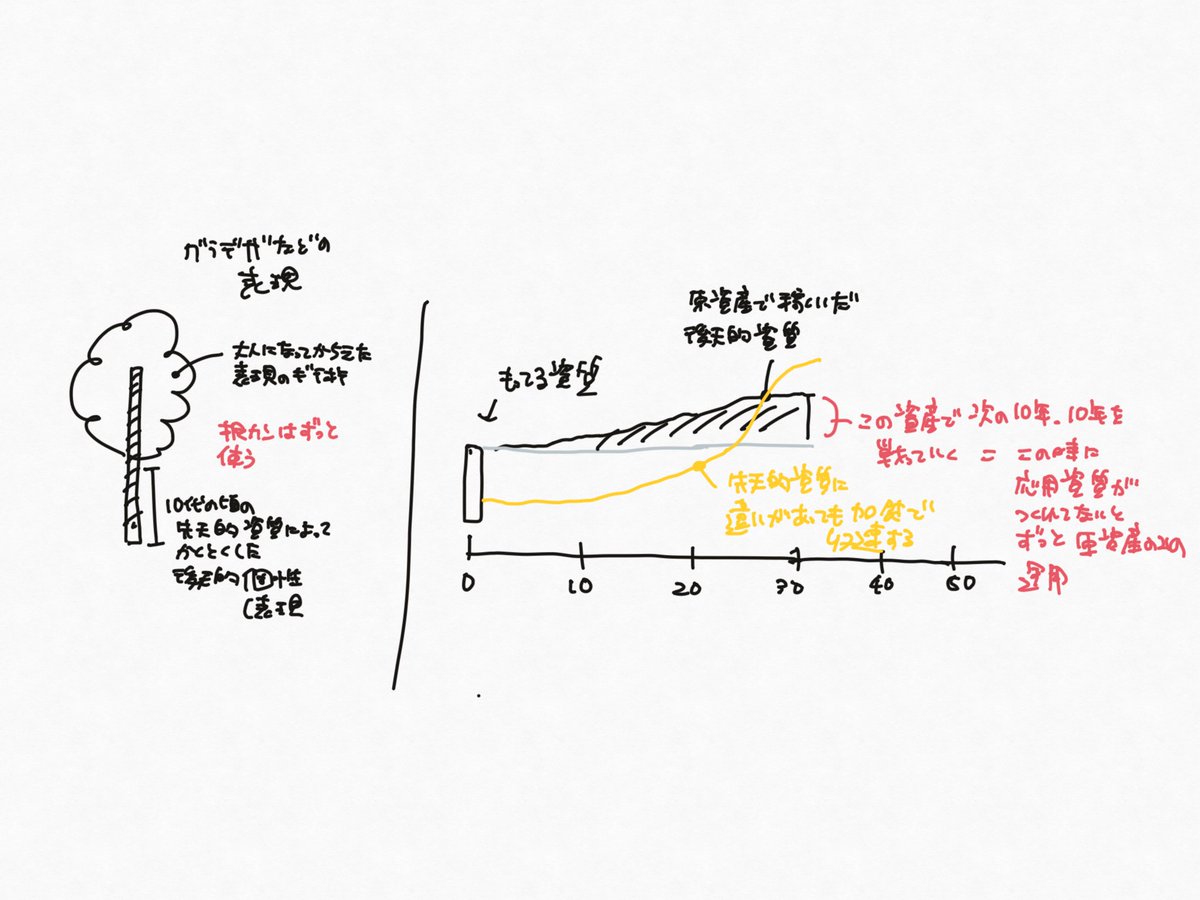 がうでぃなどの
表現
大人になってから乏た
表現のギ術
根カンはずっと
使う
10代の頃の
先天的資質によって
かくとくした
後天的個性
表現
もってる資質
原資産で稼いだ
後天的資質
この資産で次の10年、10年を
戦っていく = この時に
応用資質が
つくれてないと
ずっと原資産のみの
運用
先天的資質に
違いがあっても加速で
到達する
0 10 20 30 40 50